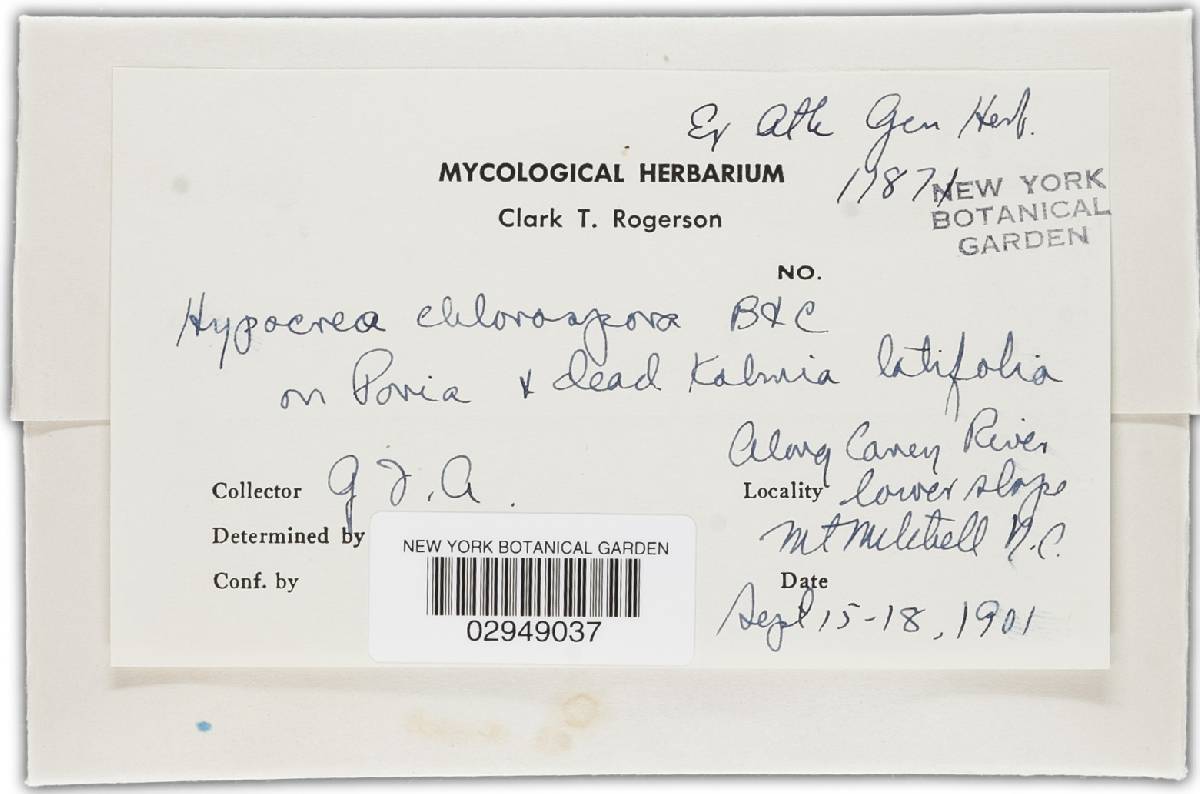 Ex Atk Gen Herb.
MYCOLOGICAL HERBARIUM
11871
NEW YORK
BOTANICAL
GARDEN
Clark T. Rogerson
NO.
Hypocrea chlorospora B&C
on Poria & dead Kalmia latifolia
Along Caney River
Collector G F. A.
Locality lower slope
Determined by
Mt Mitchell N.C.
Conf. by
Date
Sept 15-18, 1901
NEW YORK BOTANICAL GARDEN
02949037